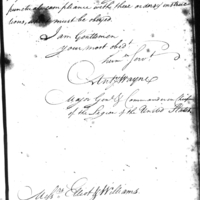 punctual compliance with these orders & instruc
tions, must be obeyed.
I am Gentlemen
your most obdt
Hum. Servt
Anty Wayne
Major Genl & Commander in Chief
of the Legion of the United States
Messrs Elliot & Williams